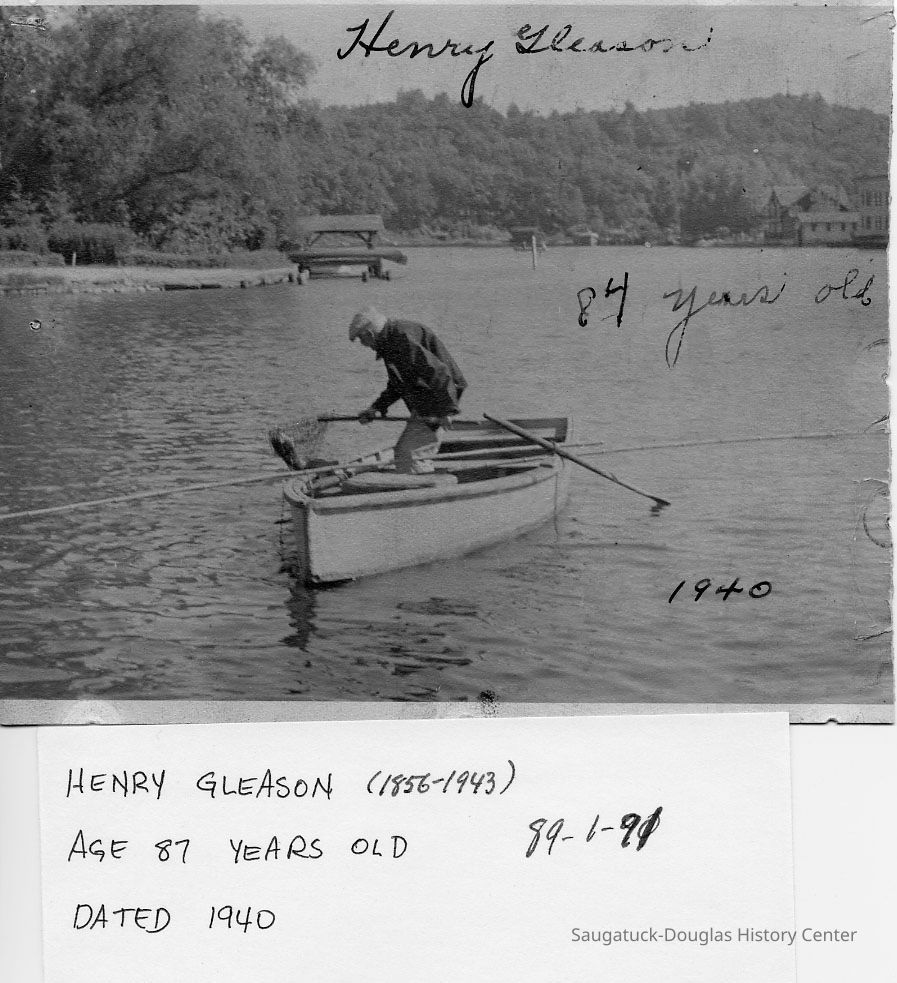 Henry Gleason
84 years old
1940
HENRY GLEASON (1856-1943)
AGE 87 YEARS OLD
89-1-91
DATED 1940
Saugatuck-Douglas History Center